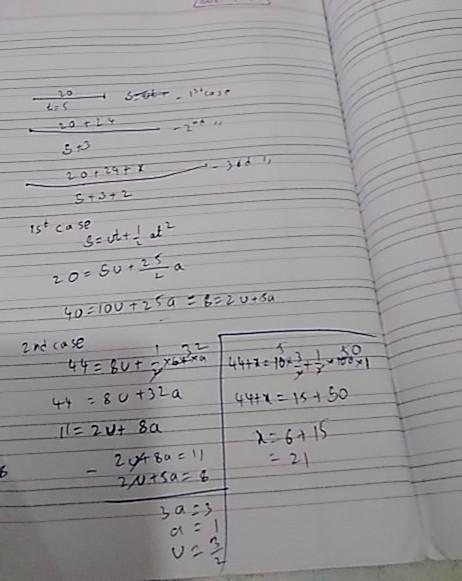 20 S=ut+ - 1st case
t=5
20+24 - 2nd "
5+3
20+24+x - 3rd "
5+3+2
1st case
S=ut+1/2 at²
20=5u+25/2 a
40=10u+25a = 8=2u+5a
2nd case
44=8u+1/2×64×a 32
44=8u+32a
11=2u+8a
- 2u+8a=11
2u+5a=8
3a=3
a=1
u=3/2
44+x=10×3/2+1/2×100×1 5 50
44+x=15+50
x=6+15
=21